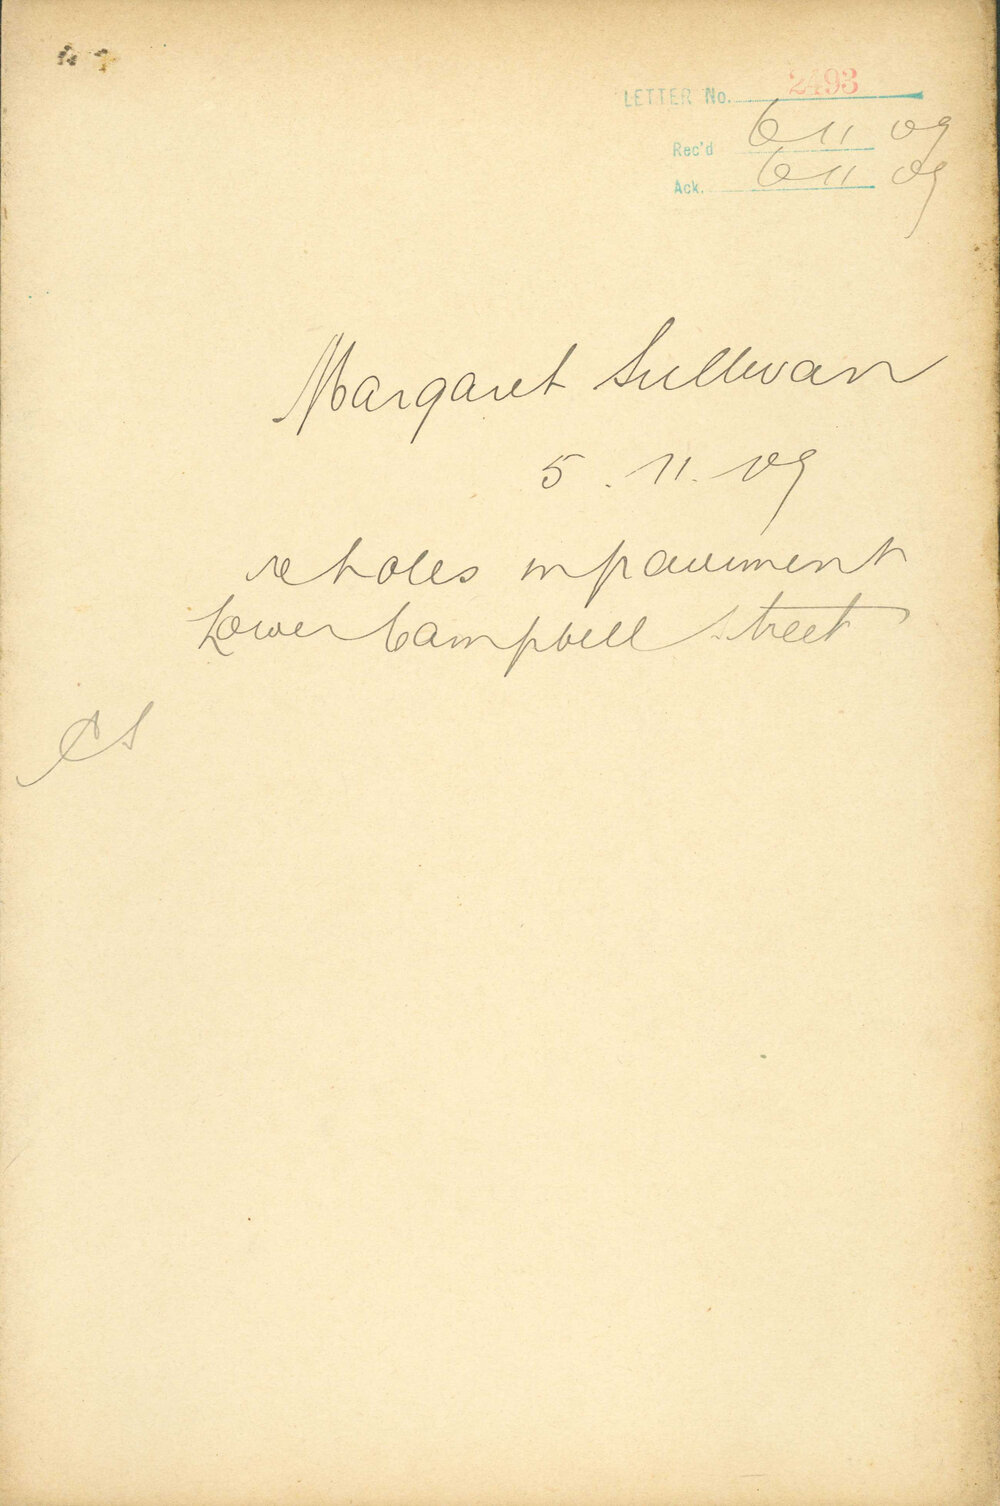 LETTER No. 2493
Rec'd 6 11 09
Ack. 6 11 09
Margaret Sullivan
5. 11. 09
re holes in pavement
Lower Campbell Street
CS